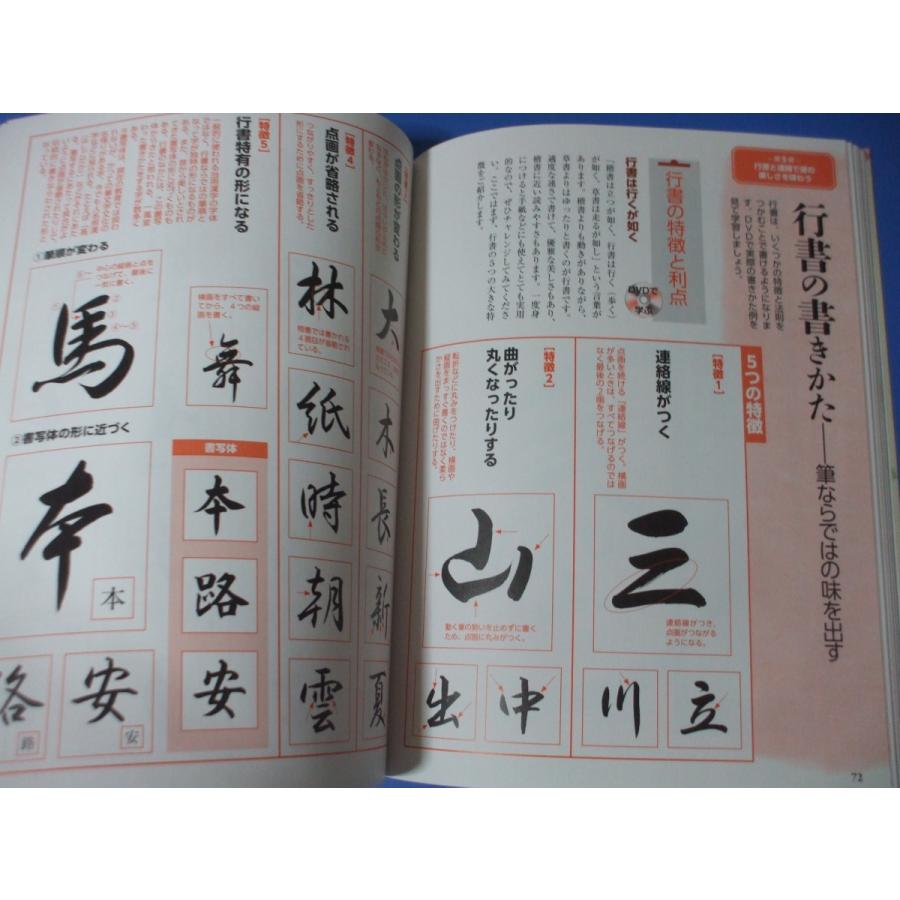 第5章
行書と連綿で筆の
楽しさを味わう
行書の書きかた──筆ならではの味を出す
行書は、いくつかの特徴と法則を
つかむことで書けるようになりま
す。DVDで実際の書きかた例を
見て学習しましょう。
行書の特徴と利点
DVDで
学ぶ
行書は行くが如く
「楷書は立つが如く、行書は行く（歩く）
が如く、草書は走るが如し」という言葉が
あります。楷書よりも動きがありながら、
草書よりはゆったりと書くのが行書です。
適度な速さで書けて、優雅な美しさもあり、
楷書に近い読みやすさもあります。一度身
につけると手紙などにも使えてとても実用
的なので、ぜひチャレンジしてみてくださ
い。ここではまず、行書の5つの大きな特
徴をご紹介します。
5つの特徴
【特徴1】
連絡線がつく
点画を続ける「連絡線」がつく。横画
が多いときは、すべてつなげるのでは
なく最後の2画をつなげる。
三
連絡線がつき、
点画がつながる
ようになる。
立
川
【特徴2】
曲がったり
丸くなったりする
転折などに丸みをつけたり、横画や
縦画をまっすぐ書くのではなく柔ら
かさを出すために曲げたりする。
山
動く筆の勢いを止めずに書く
ため、点画に丸みがつく。
中
出
72
点画の形が変わる
大
木
長
新
夏
【特徴4】
点画が省略される
つながりやすく、すっきりとした
形にするために点画を省略する。
林
楷書では書かれる
4画目が省略され
ている。
紙
時
朝
雲
【特徴5】
行書特有の形になる
①筆順が変わる
横画をすべて書い
てから、4つの縦
画を書く。
舞
馬
②書写体の形に近づく
書写体
本
路
安
本
本
安
安
路
路